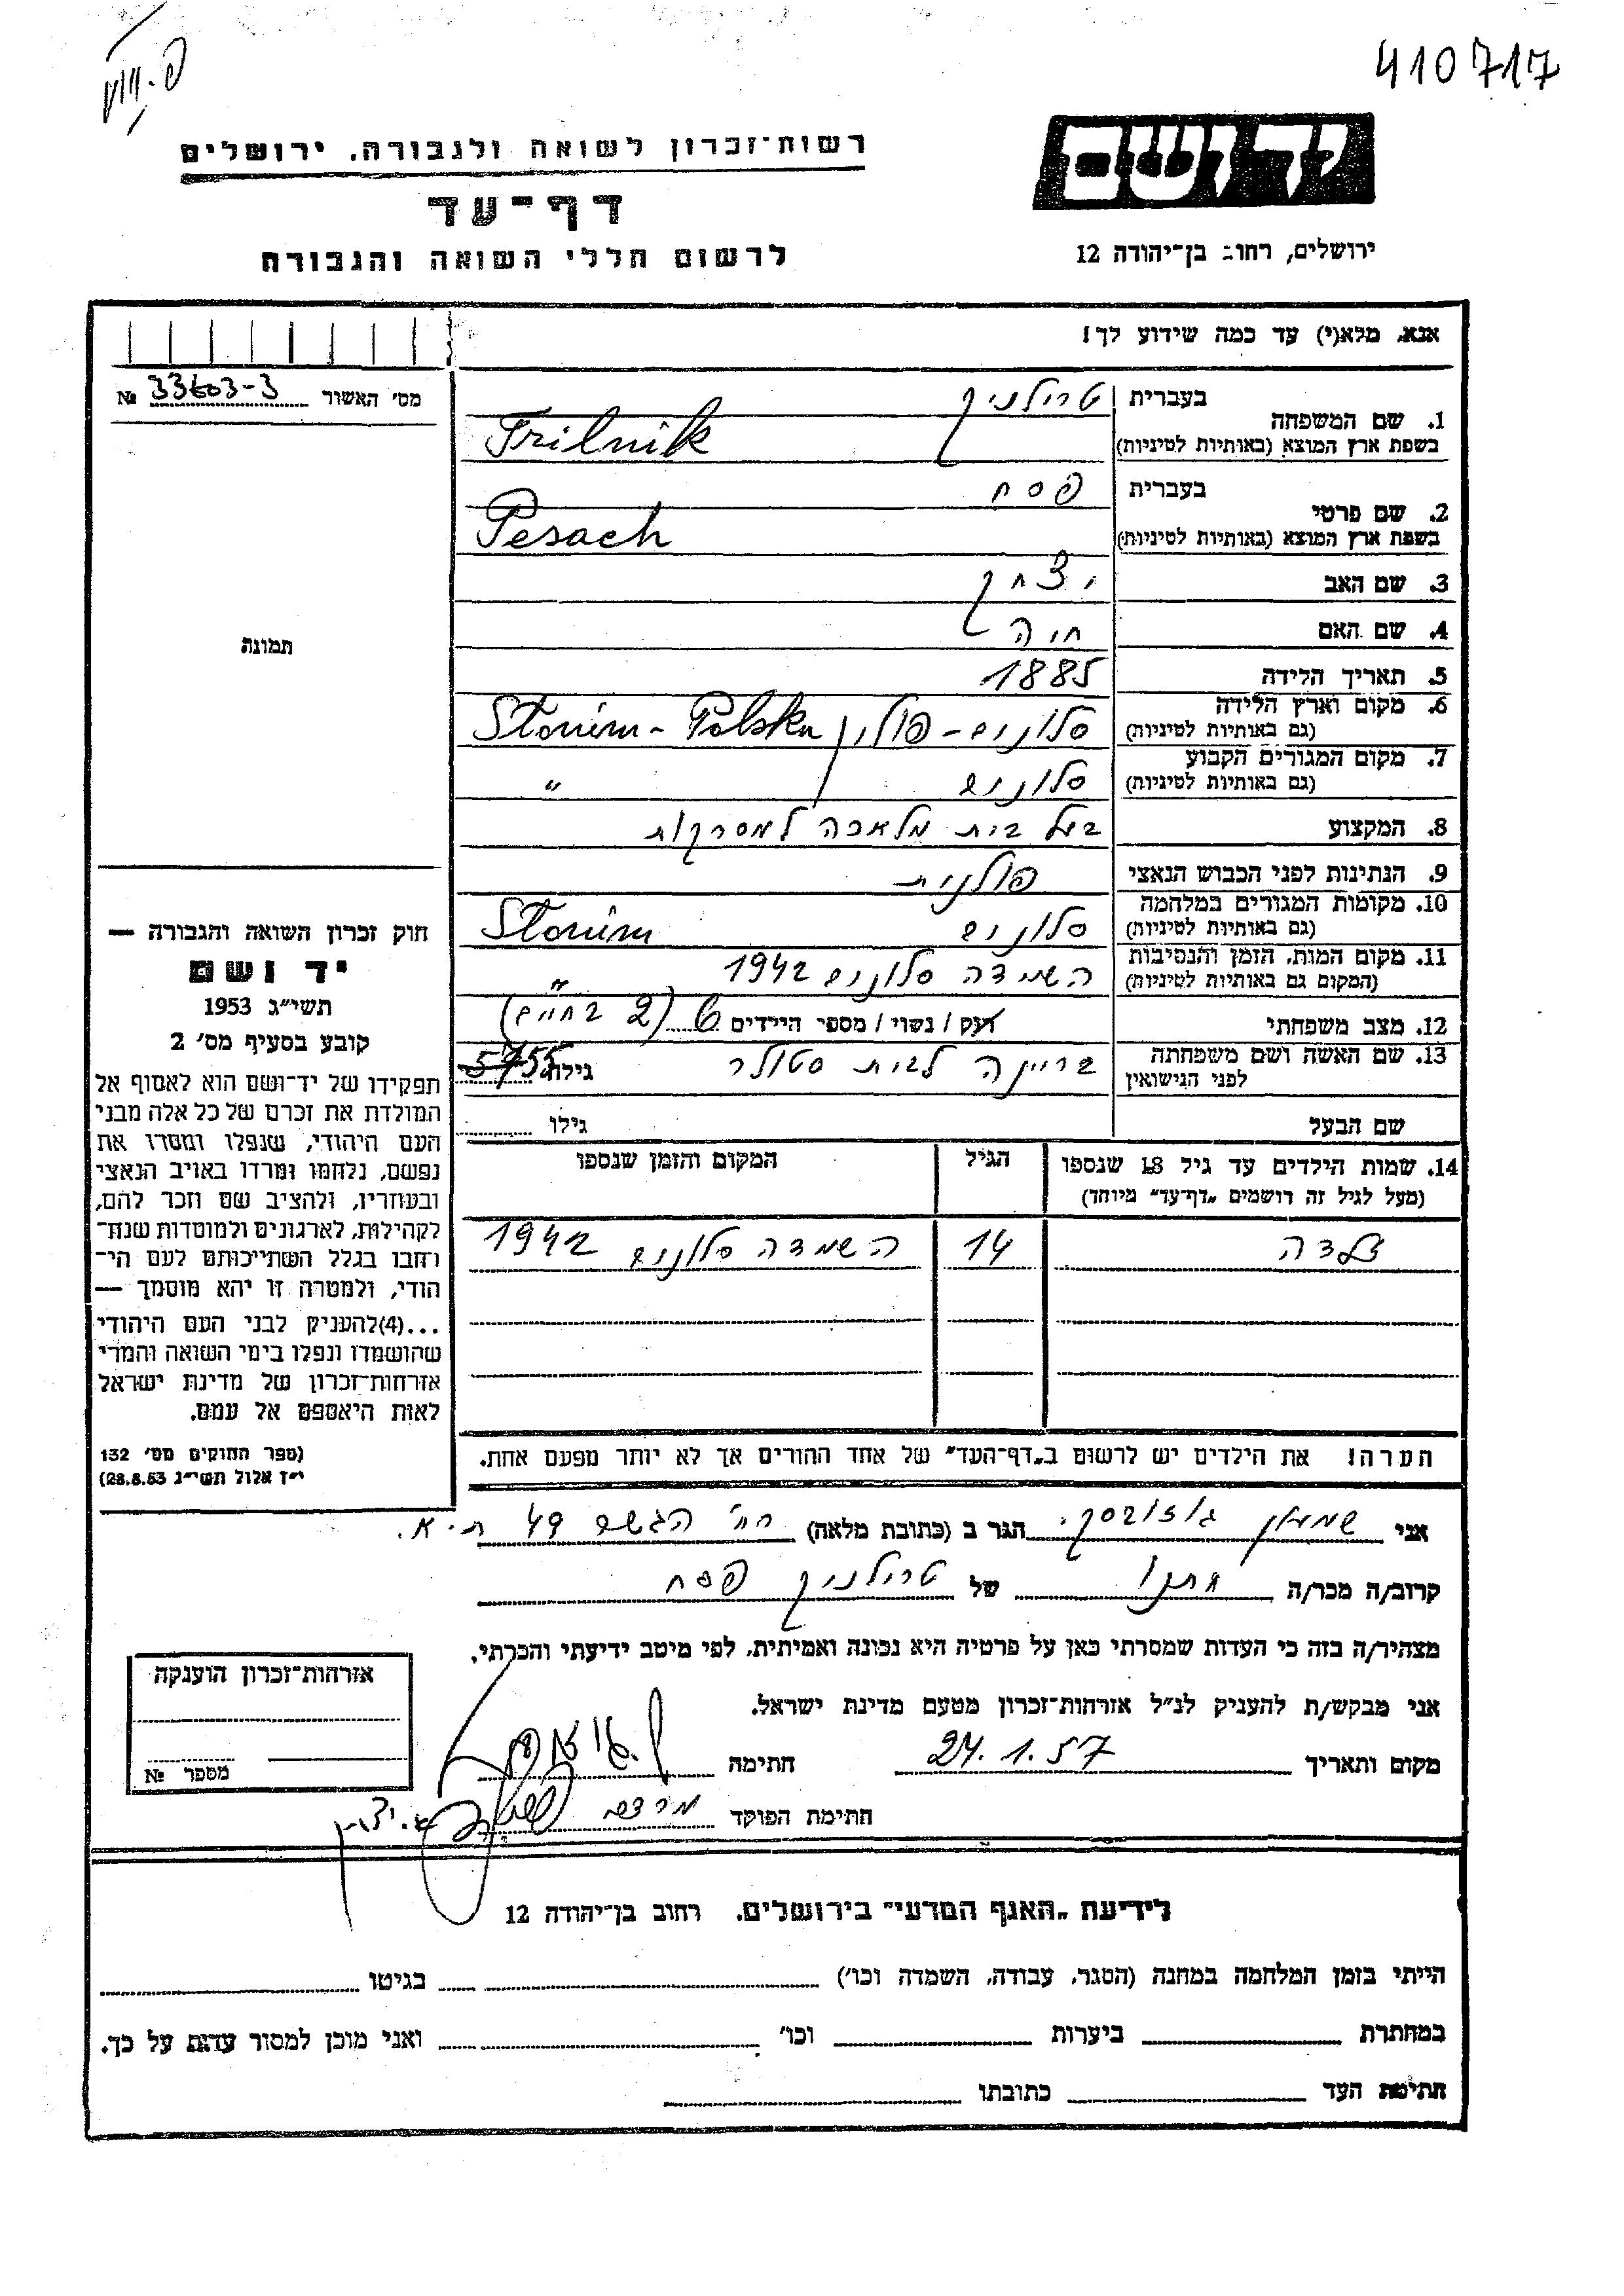 410717
יד ושם
רשות־זכרון לשואה ולגבורה. ירושלים
דף־עד
לרשום חללי השואה והגבורה
ירושלים, רחוב בן־יהודה 12
אנא, מלא(י) עד כמה שידוע לך!
מס׳ האשור № 33603-3
תמונה
1. שם המשפחה בעברית טרילניק
בשפת ארץ המוצא (באותיות לטיניות) Trilnik
2. שם פרטי בעברית פסח
בשפת ארץ המוצא (באותיות לטיניות) Pesach
3. שם האב יצחק
4. שם האם חיה
5. תאריך הלידה 1885
6. מקום וארץ הלידה
(גם באותיות לטיניות) סלונים - פולין Słonim - Polska
7. מקום המגורים הקבוע
(גם באותיות לטיניות) סלונים "
8. המקצוע בעל בית מלאכה למסרקות
9. הנתינות לפני הכבוש הנאצי פולנית
10. מקומות המגורים במלחמה
(גם באותיות לטיניות) סלונים Słonim
11. מקום המות, הזמן והנסיבות
(המקום גם באותיות לטיניות) השמדה סלונים 1942 "
12. מצב משפחתי רוק / נשוי / מספר הילדים 6 (2 בחיים)
13. שם האשה ושם משפחתה
לפני הנישואין בריינה לבית סטולר גילה 55
שם הבעל גילו
14. שמות הילדים עד גיל 18 שנספו הגיל המקום והזמן שנספו
(מעל לגיל זה רושמים „דף־עד" מיוחד)
זלדה 14 השמדה סלונים 1942
הערה! את הילדים יש לרשום ב„דף־העד" של אחד ההורים אך לא יותר מפעם אחת.
חוק זכרון השואה והגבורה —
יד ושם
תשי״ג 1953
קובע בסעיף מס׳ 2
תפקידו של יד־ושם הוא לאסוף אל
המולדת את זכרם של כל אלה מבני
העם היהודי, שנפלו ומסרו את
נפשם, נלחמו ומרדו באויב הנאצי
ובעוזריו, ולהציב שם וזכר להם,
לקהילות, לארגונים ולמוסדות שנח־
רחבו בגלל השתייכותם לעם הי־
הודי, ולמטרה זו יהא מוסמך —
...(4)להעניק לבני העם היהודי
שהושמדו ונפלו בימי השואה והמרי
אזרחות־זכרון של מדינת ישראל
לאות היאספם אל עמם.
(ספר החוקים מס׳ 132
י״ז אלול תשי״ג 28.8.53)
אני שמעון הגר ב (כתובת מלאה) רח׳ הגשם 49 ת.א.
קרוב/ה מכר/ה חתנו של טרילניק פסח
מצהיר/ה בזה כי העדות שמסרתי כאן על פרטיה היא נכונה ואמיתית, לפי מיטב ידיעתי והכרתי.
אני מבקש/ת להעניק לנ״ל אזרחות־זכרון מטעם מדינת ישראל.
מקום ותאריך 24.1.57 חתימה
חתימת הפוקד
אזרחות־זכרון הוענקה
מספר №
לידיעת „האגף המדעי" בירושלים. רחוב בן־יהודה 12
הייתי בזמן המלחמה במחנה (הסגר, עבודה, השמדה וכו׳) בגיטו
במחתרת ביערות וכו׳ ואני מוכן למסור עדות על כך.
חתימת העד כתובתו